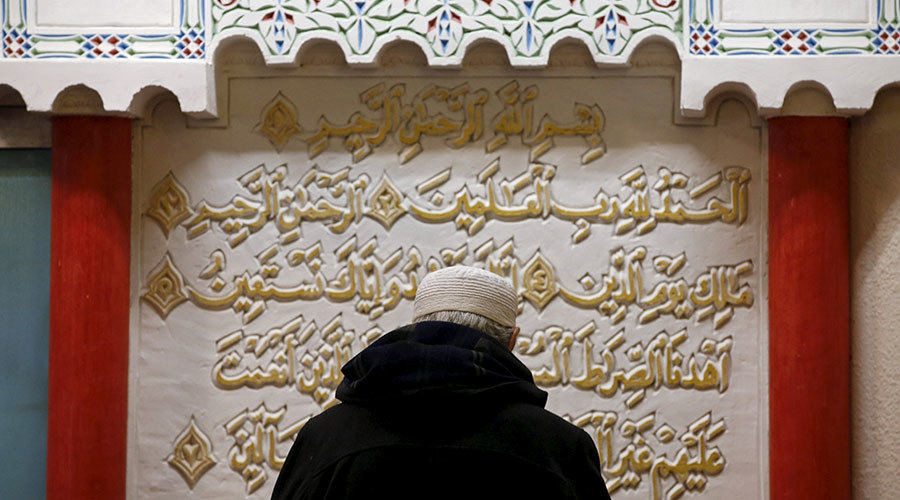 بِسْمِ اللَّهِ الرَّحْمَنِ الرَّحِيمِ
الْحَمْدُ لِلَّهِ رَبِّ الْعَالَمِينَ ٢ الرَّحْمَنِ الرَّحِيمِ ٣
مَلِكِ يَوْمِ الدِّينِ ٤ وَإِيَّاكَ نَسْتَعِينُ ٥
اهْدِنَا الصِّرَاطَ الَّذِينَ أَنْعَمْتَ
عَلَيْهِمْ غَيْرِ ٧